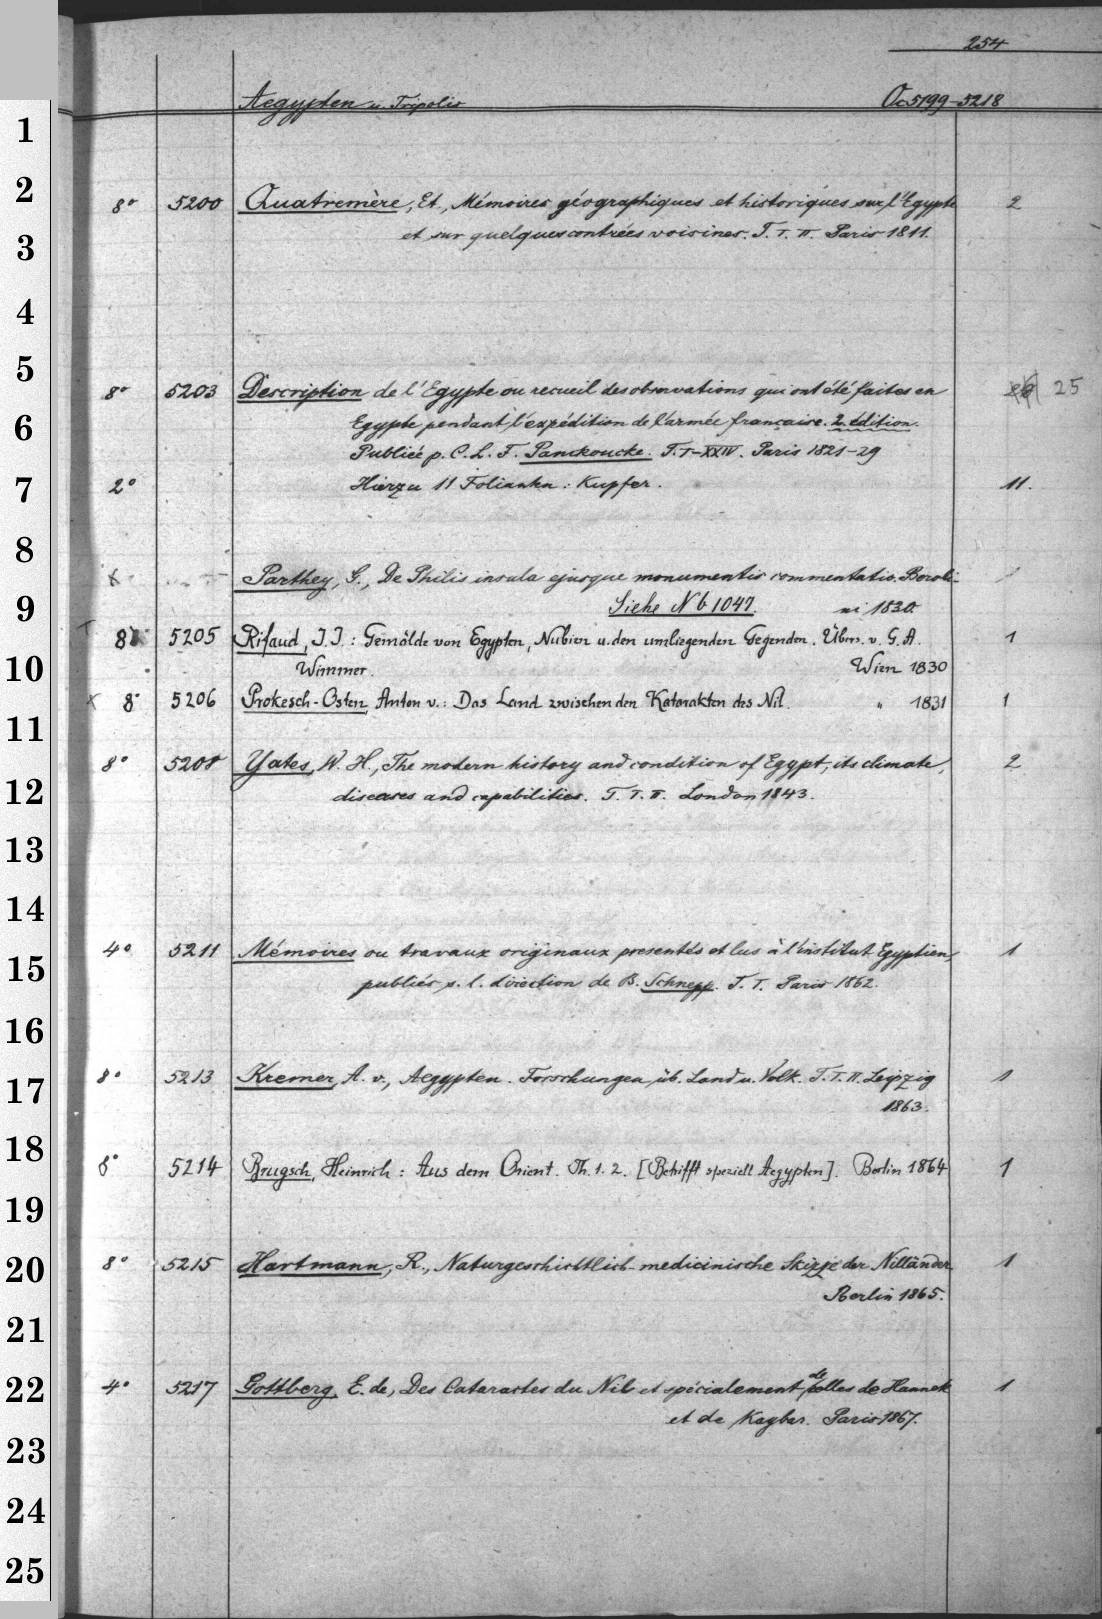 254
Aegypten u. Tripolis Oc 5199-5218
1
2
8° 5200 Quatremère, Et., Mémoires géographiques et historiques sur l'Egypte 2
3
et sur quelques contrées voisines. T. I. II. Paris 1811.
4
5
8° 5203 Description de l'Egypte ou recueil des observations qui ont été faites en 25
6
Egypte pendant l'expédition de l'armée française. 2. édition.
Publiée p. C. L. F. Panckoucke. T. I-XXIV. Paris 1821-29
7
2° Hierzu 11 Folianten: Kupfer. 11.
8
Parthey, G., De Philis insula ejusque monumentis commentatio. Beroli-
9
Siehe Nb 1047. ni 1830.
8° 5205 Rifaud, J. J.: Gemälde von Egypten, Nubien u. den umliegenden Gegenden. Übers. v. G. A. 1
10
Wimmer. Wien 1830
x 8° 5206 Prokesch-Osten, Anton v.: Das Land zwischen den Katarakten des Nil. " 1831 1
11
8° 5208 Yates, W. H., The modern history and condition of Egypt, its climate, 2
12
diseases and capabilities. T. I. II. London 1843.
13
14
4° 5211 Mémoires ou travaux originaux presentés et lus à l'institut Egyptien, 1
15
publiés s. l. direction de B. Schnepp. T. I. Paris 1862.
16
8° 5213 Kremer, A. v., Aegypten. Forschungen üb. Land u. Volk. T. I. II. Leipzig 1
17
1863.
18
8° 5214 Brugsch, Heinrich: Aus dem Orient. Th. 1. 2. [Betrifft speziell Aegypten]. Berlin 1864 1
19
20
8° 5215 Hartmann, R., Naturgeschichtlich-medicinische Skizze der Nilländer. 1
Berlin 1865.
21
22
4° 5217 Gottberg, E. de, Des Cataractes du Nil et spécialement de celles de Hannek 1
et de Kaybar. Paris 1867.
23
24
25